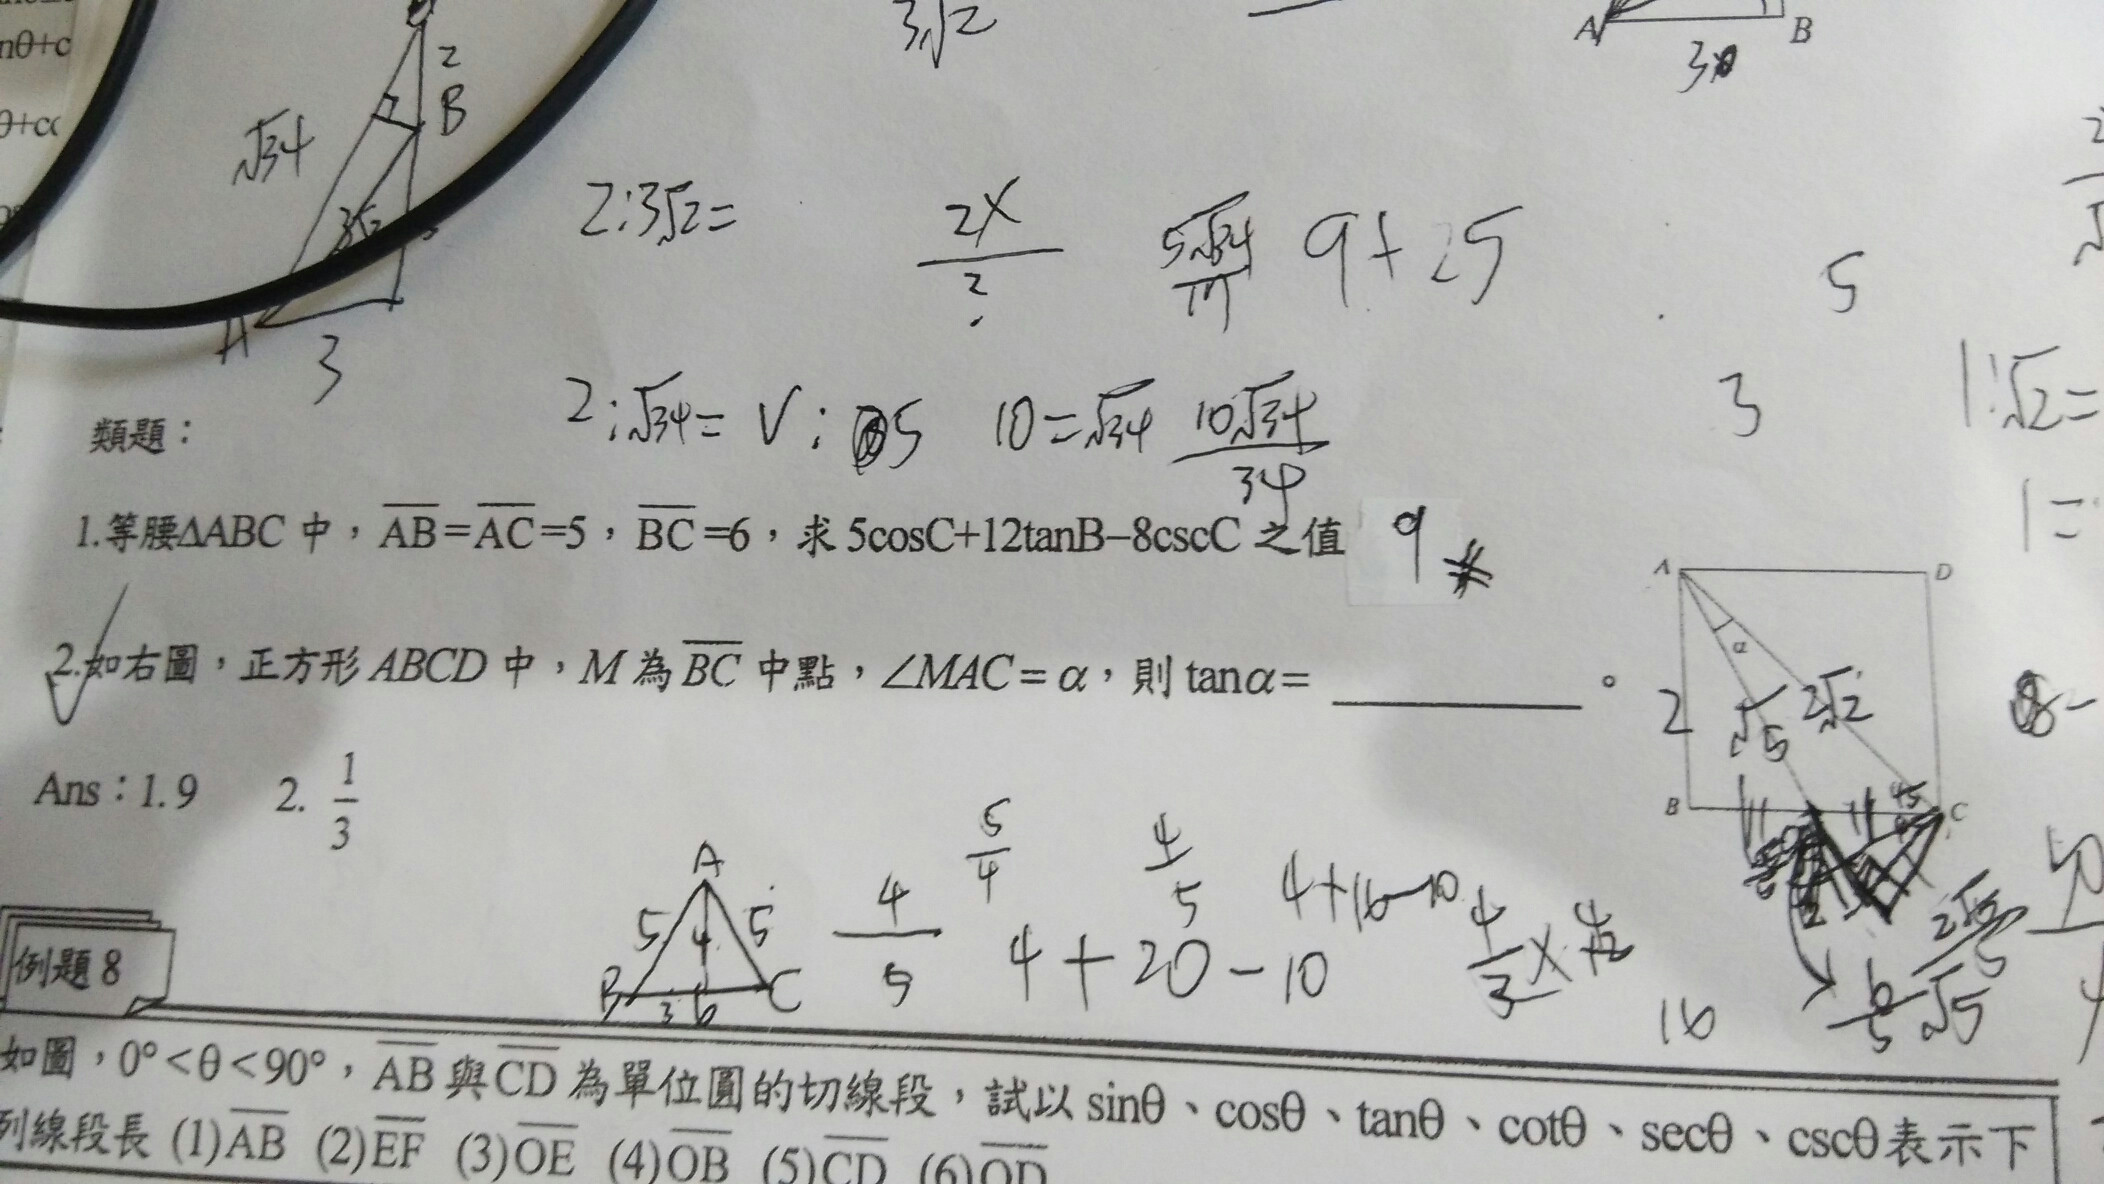 nθ+c
θ+cc
2
B
√34
3√2
A
3
3√2
A B
3
2:3√2=
2x
?
5√34
17
9+25
5
3
1:√2=
1=
2:√34= V: 5
10=√34
10√34
34
類題：
1.等腰ΔABC 中，AB=AC=5，BC=6，求 5cosC+12tanB–8cscC 之值 9
2.如右圖，正方形 ABCD 中，M 為 BC 中點，∠MAC = α，則 tanα= 。
A D
α
2 √5 2√2
B C
45
8-
Ans：1.9 2. 1/3
A
5 4 5
B 3 6 C
4
5
5
4
4
5
4+16-10
4+20-10
4/3×12
16
2√5
5
6
5
√5
例題 8
如圖，0°<θ<90°，AB 與 CD 為單位圓的切線段，試以 sinθ、cosθ、tanθ、cotθ、secθ、cscθ表示下
列線段長 (1)AB (2)EF (3)OE (4)OB (5)CD (6)OD